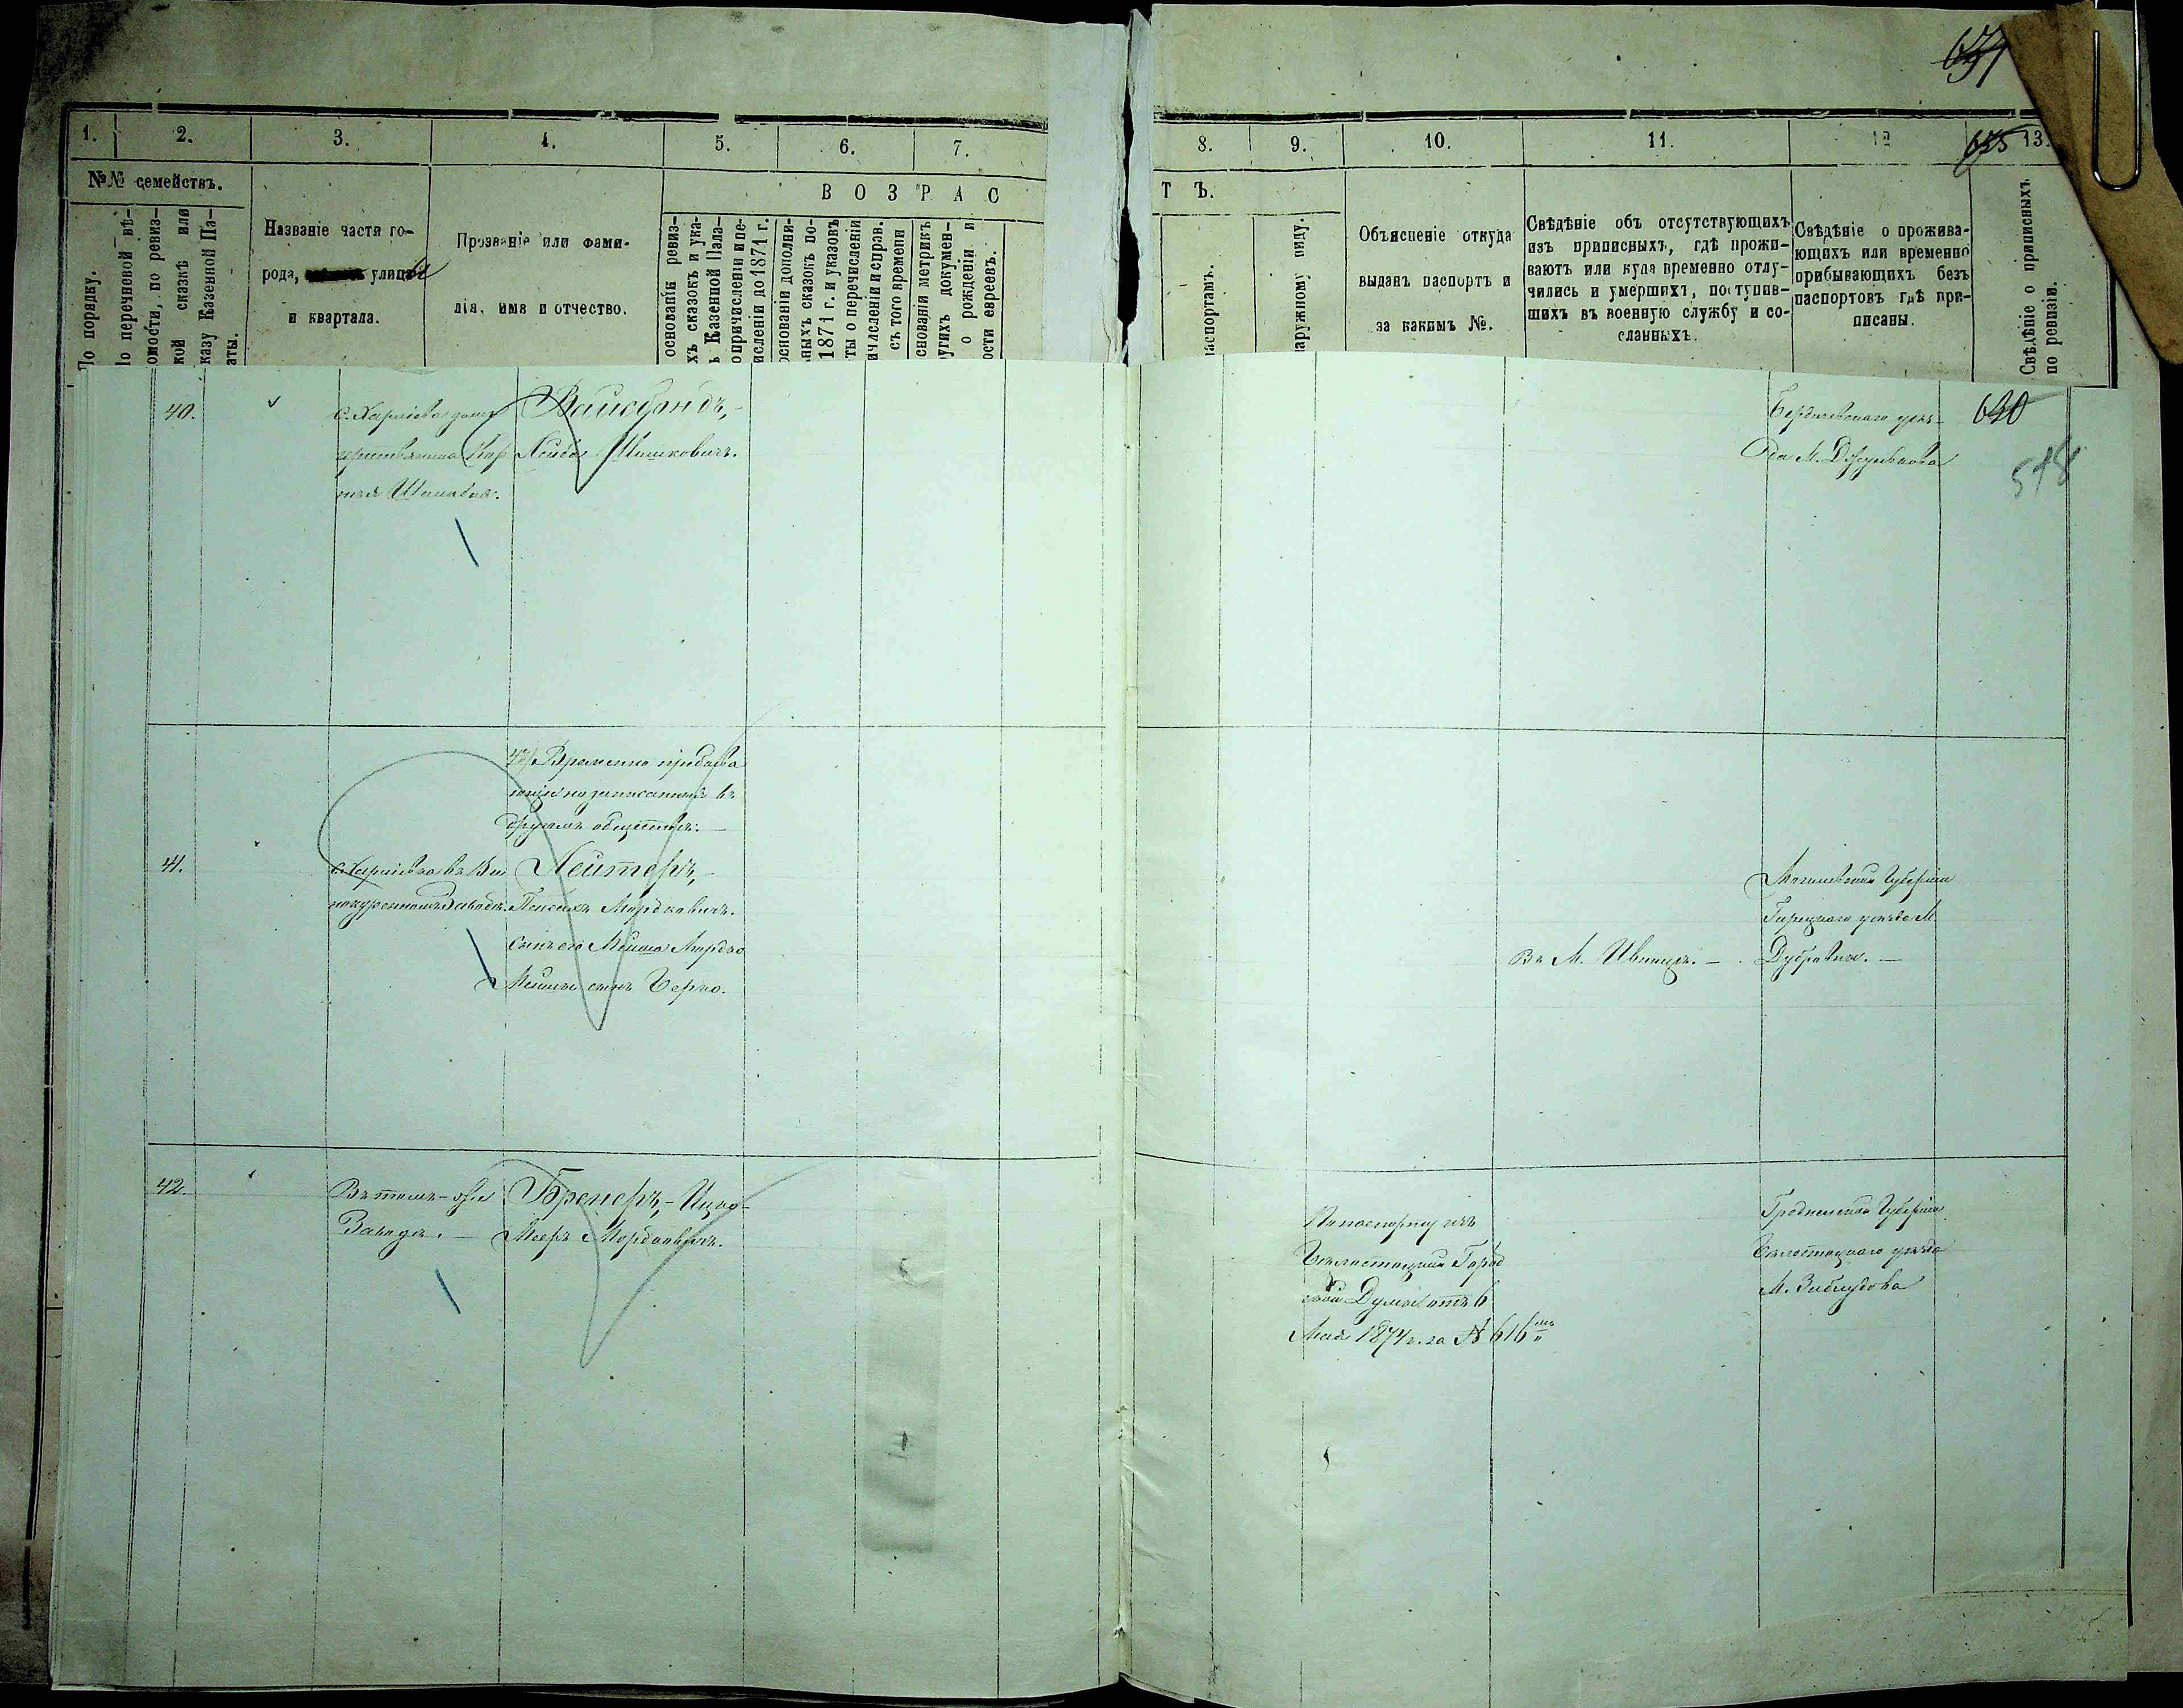 1.
2.
3.
4.
5.
6.
7.
8.
9.
10.
11.
12
13.
655
№№ семействъ.
По порядку.
По перечневой вѣ-
омости, по ревиз-
кой сказкѣ или
казу Казенной Па-
аты.
Названіе части го-
рода, улицы
и квартала.
Прозваніе или фами-
лія, имя и отчество.
ВОЗРАС
ТЪ.
основаніи ревиз-
хъ сказокъ и ука-
ъ Казенной Пала-
о причисленіи и пе-
ислeніи до 1871 г.
основаніи дополни-
ныхъ сказокъ по-
1871 г. и указовъ
ты о перечисленіи
ичисленіи и справ.
съ того времени
снованіи метрикъ
угихъ докумен-
о рожденіи и
ости евреевъ.
паспортамъ.
наружному виду.
Объясненіе откуда
выданъ паспортъ и
за какимъ №.
Свѣдѣніе объ отсутствующихъ
изъ приписныхъ, гдѣ прожи-
ваютъ или куда временно отлу-
чились и умершихъ, поступив-
шихъ въ военную службу и со-
сланныхъ.
Свѣдѣніе о прожива-
ющихъ или временно
прибывающихъ безъ
паспортовъ гдѣ при-
писаны.
Свѣдѣніе о приписныхъ
по ревизіи.
40.
с. Харліевка
Вайсбандъ,
Лейба Шмиковичъ.
Бердичевскаго уѣз-
да М.
630
518
Временно пребыва
ющіе но записанные въ
другомъ обществѣ:
41.
с. Харліевка въ Ви
нокуренномъ Заводѣ.
Лейтеръ,
Пейсахъ Мордковичъ.
Сынъ его Мойша Мордко
Мойши сынъ Берко.
Въ М. Ивницѣ.
Могилевской Губерніи
Горецкаго уѣзда М.
Дубровна.
42.
Въ томъ-же
Заводѣ.
Бренеръ, Ицко-
Мееръ Мордковичъ.
По паспорту изъ
Бѣлостоцкой Город
ской Думы отъ 6
Мая 1874 г. за № 616
Гродненской Губерніи
Бѣлостоцкаго уѣзда
М. Заблудова